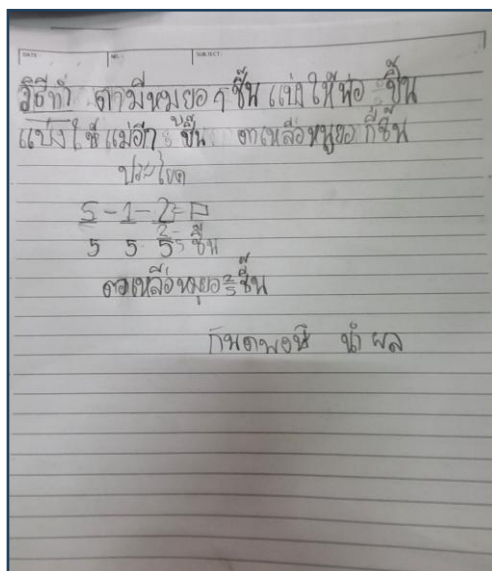 DATE: NO. SUBJECT:
วิธีทำ ตามีหมูยอ ๆ ชิ้น แบ่งให้พ่อ ชิ้น
แบ่งให้แม่อีก ชิ้น ตาเหลือหมูยอ กี่ชิ้น
ประโยค
5 - 1 - 2 = □
5 5 5 ชิ้น
ตาเหลือหมูยอ 2/5 ชิ้น